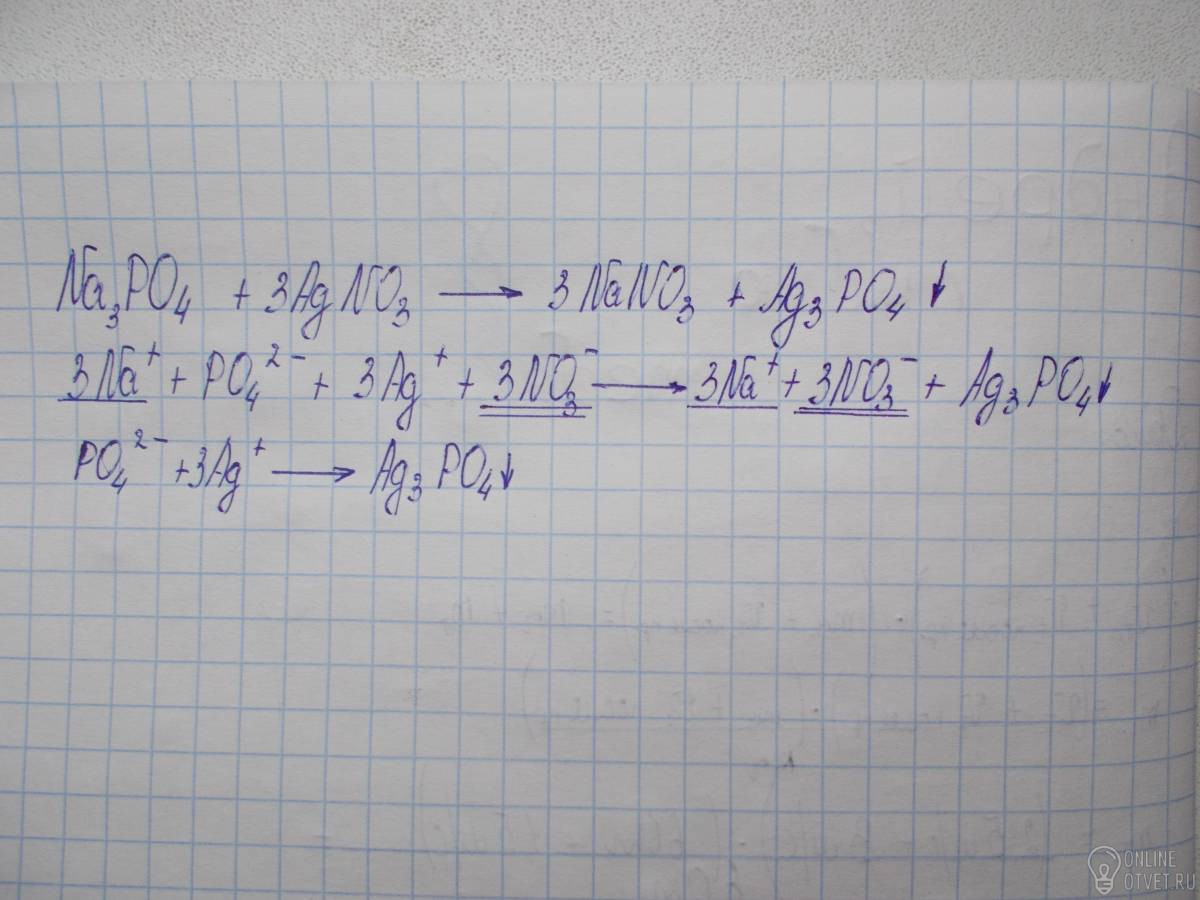 Na₃PO₄ + 3AgNO₃ → 3NaNO₃ + Ag₃PO₄↓
3Na⁺ + PO₄²⁻ + 3Ag⁺ + 3NO₃⁻ → 3Na⁺ + 3NO₃⁻ + Ag₃PO₄↓
PO₄²⁻ + 3Ag⁺ → Ag₃PO₄↓
ONLINE
OTVET.RU